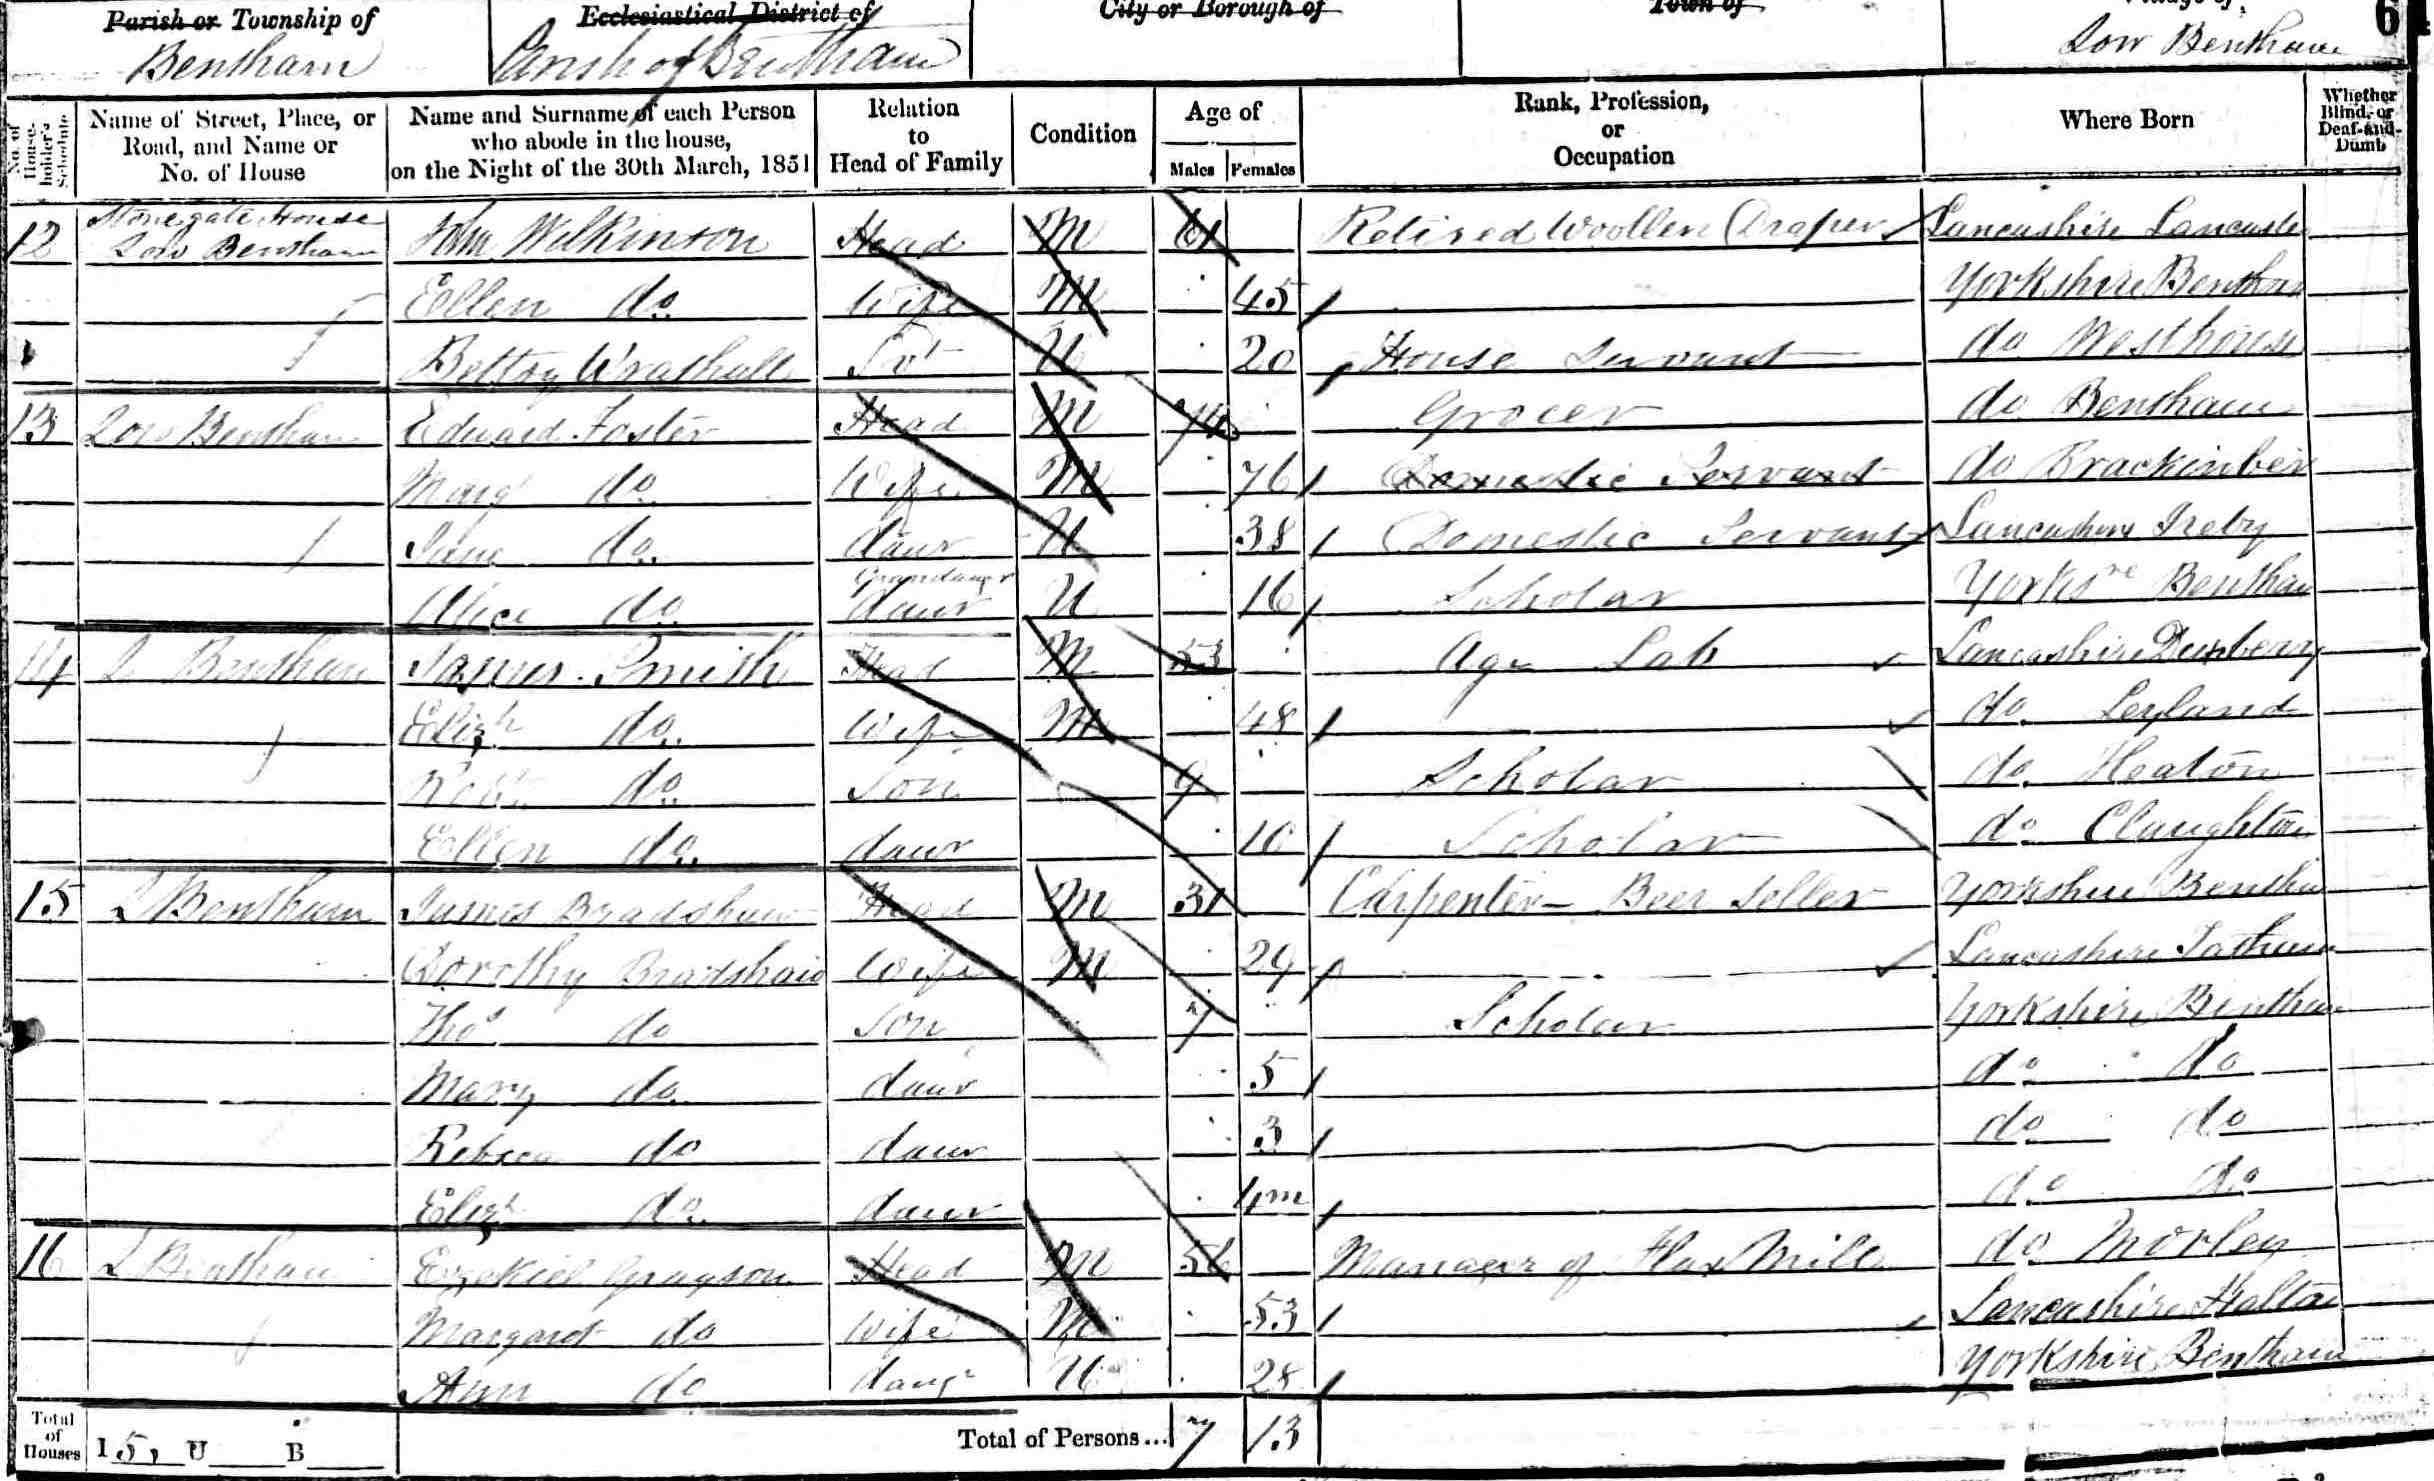 Parish or Township of
Bentham
Ecclesiastical District of
Parish of Bentham
City or Borough of
Town of
Village of
Low Bentham
6
No. of House-holder's Schedule
Name of Street, Place, or Road, and Name or No. of House
Name and Surname of each Person who abode in the house, on the Night of the 30th March, 1851
Relation to Head of Family
Condition
Age of
Males Females
Rank, Profession, or Occupation
Where Born
Whether Blind, or Deaf-and-Dumb
12 Stonegate House Low Bentham John Wilkinson Head M 61 Retired Woollen Draper Lancashire Lancaster
Ellen do. Wife M 45 Yorkshire Bentham
Bettsy Wrathall Svt U 20 House Servant do Westhouse
13 Low Bentham Edward Foster Head M Grocer do Bentham
Marg do. Wife M 76 Domestic Servant do Brackinber
Jane do. daur U 38 Domestic Servant Lancashire Ireby
Alice do. Grandaugr daur U 16 Scholar Yorksre Bentham
14 L Bentham James Smith Head M 53 Ag Lab Lancashire Duxberry
Elizh do. Wife M 48 do. Leyland
Robt do. Son 9 Scholar do. Heaton
Ellen do. daur 10 Scholar do Claughton
15 L Bentham James Bradshaw Head M 31 Carpenter - Beer Seller Yorkshire Bentham
Dorothy Bradshaw Wife M 29 Lancashire Tatham
Thos do Son 7 Scholar Yorkshire Bentham
Mary do. daur 5 do do
Rebeca do daur 3 do do
Elizh do. daur 4m do do
16 L Bentham Ezekiel Grayson Head M 56 Manager of Flax Mill do Morley
Margaret do Wife M 53 Lancashire Halton
Ann do daugr U 28 Yorkshire Bentham
Total of Houses I 5, U B Total of Persons... 7 13